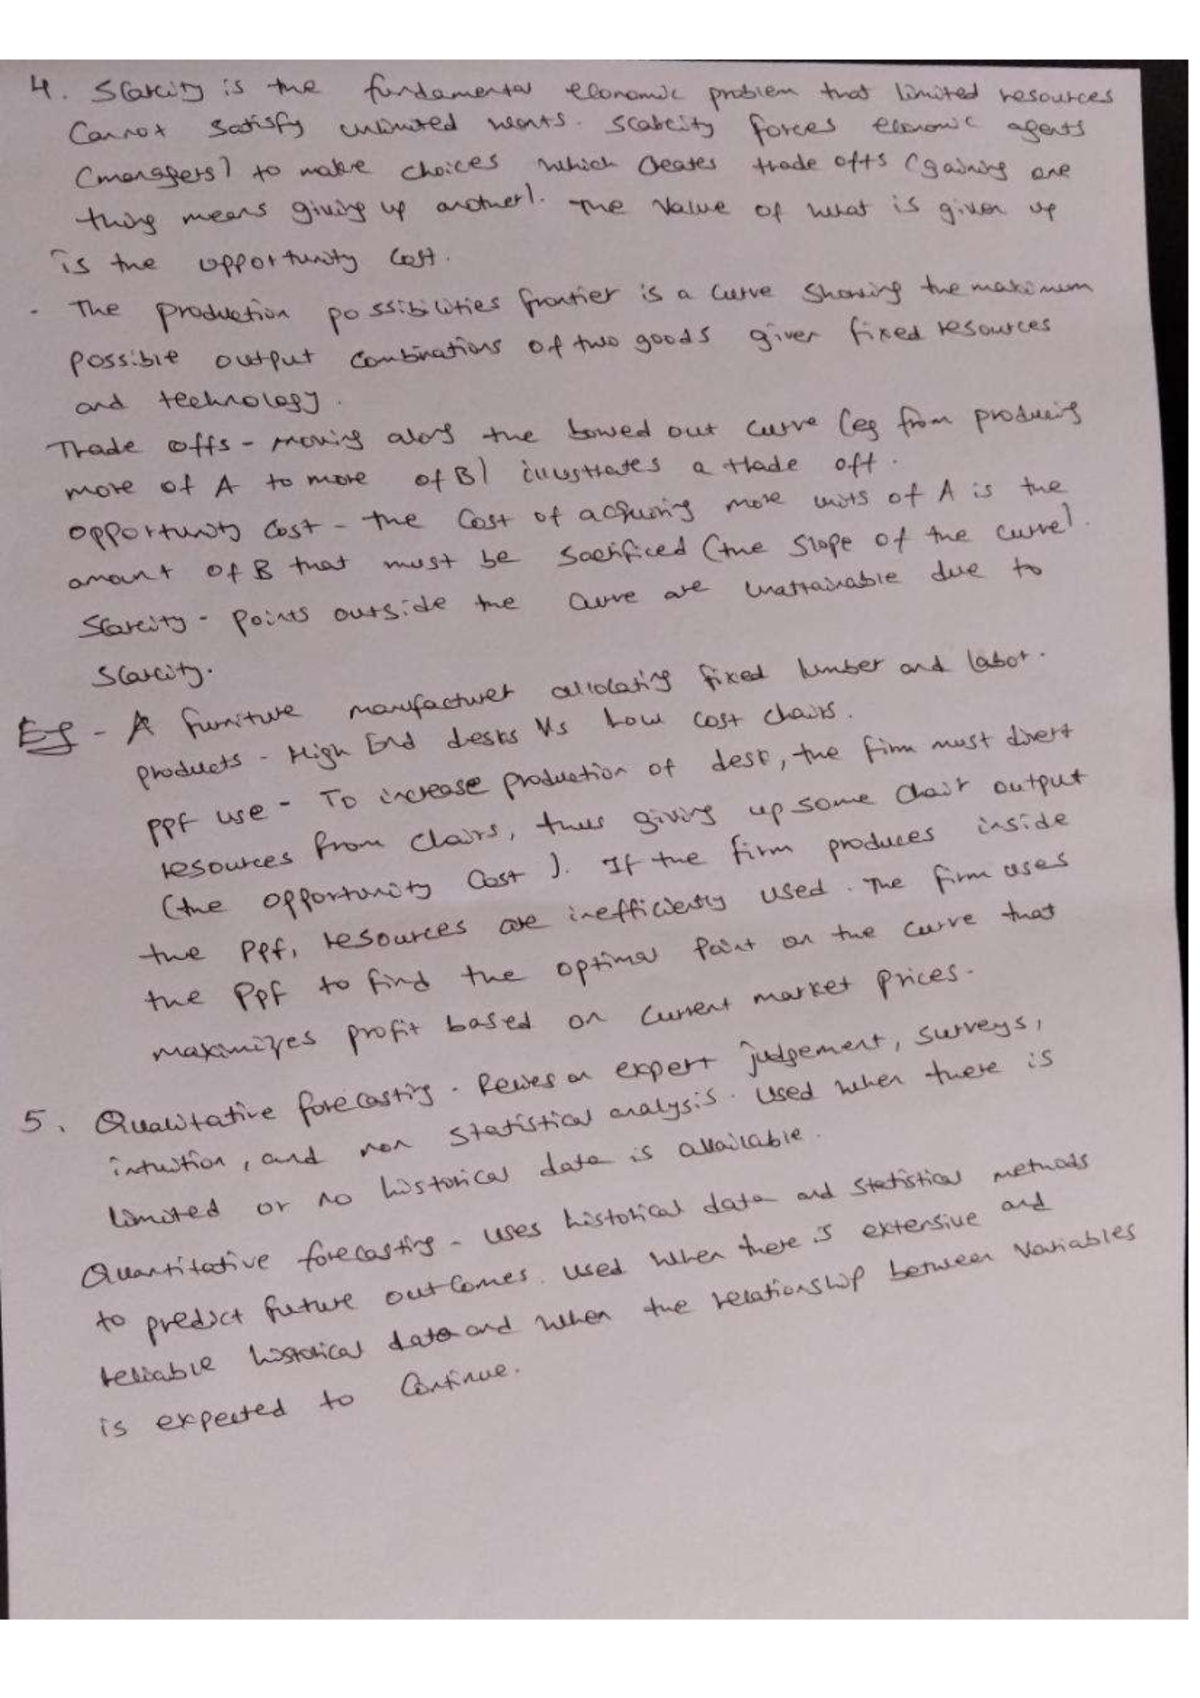 4. Scarcity is the fundamental economic problem that limited resources
Cannot satisfy unlimited wants. Scarcity forces economic agents
(managers) to make choices which creates trade offs (gaining one
thing means giving up another). The value of what is given up
is the opportunity cost.
- The production possibilities frontier is a curve showing the maximum
possible output combinations of two goods given fixed resources
and technology.
Trade offs - moving along the bowed out curve (eg from producing
more of A to more of B) illustrates a trade off.
opportunity cost - the cost of acquiring more units of A is the
amount of B that must be sacrificed (the slope of the curve).
Scarcity - points outside the curve are unattainable due to
scarcity.
Eg - A furniture manufacturer allocating fixed lumber and labor.
products - High End desks Vs Low cost chairs.
PPf use - To increase production of desk, the firm must divert
resources from chairs, thus giving up some chair output
(the opportunity cost). If the firm produces inside
the PPf, resources are inefficiently used. The firm uses
the PPf to find the optimal point on the curve that
maximizes profit based on current market prices.
5. Qualitative forecasting - Relies on expert judgement, surveys,
intuition, and non statistical analysis. Used when there is
limited or no historical data is available.
Quantitative forecasting - uses historical data and statistical methods
to predict future outcomes. Used when there is extensive and
reliable historical data and when the relationship between variables
is expected to continue.